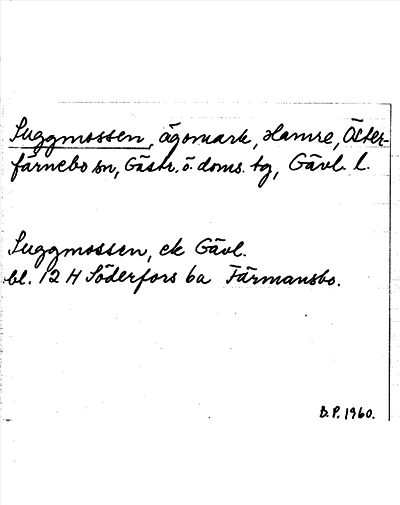 Suggmossen, ägomark, Hamre, Öster-
färnebo sn, Gästr. ö. doms. tg, Gävl. l.
Suggmossen, ek Gävl.
bl. 12 H Söderfors 6a Färmansbo.
B.P. 1960.